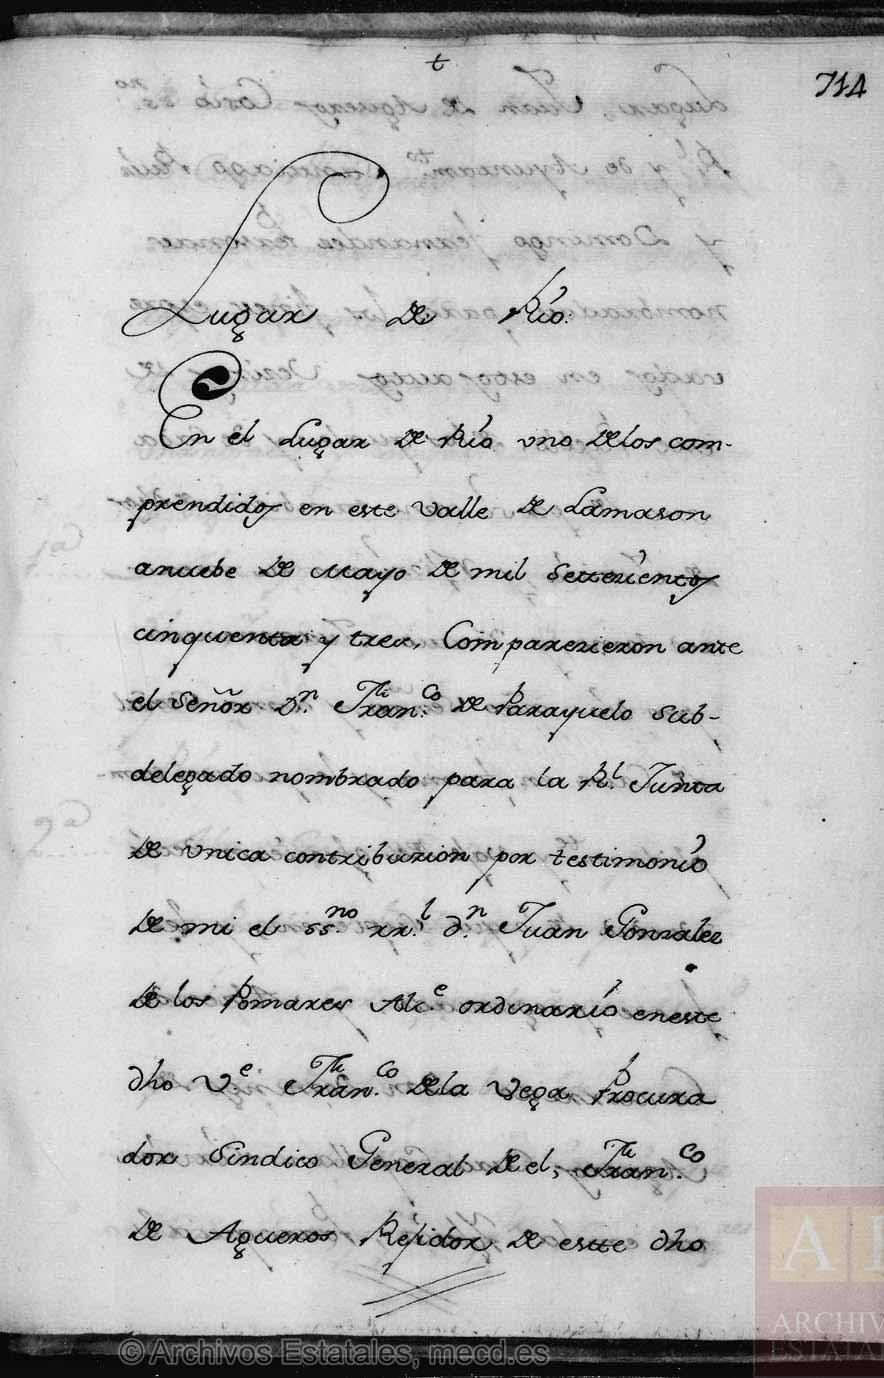 t
714
Lugar de Río.
En el Lugar de Río uno delos com-
prendidos en este valle de Lamason
anuebe de Mayo de mil settecientos
cinquenta y tres, Comparecieron ante
el Señor Dn. Fran.co de Parayuelo Sub-
delegado nombrado para la Rl. Junta
de unica contribucion por testimonio
de mi el ssno. rrl. dn. Juan Gonzalez
de los Pomares Alce. ordinario eneste
dho Ve. Fran.co dela Vega Procura
dor Sindico General de el, Fran.co
de Agueros Rejidor de estte dho
© Archivos Estatales, mecd.es
ARCHIV
ESTATA